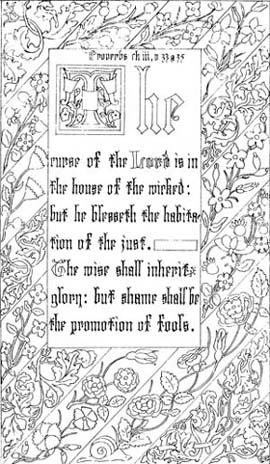 Proverbs ch iii, v 33 & 35
The
curse of the Lord is in
the house of the wicked:
but he blesseth the habita-
tion of the just.
The wise shall inherit
glory: but shame shall be
the promotion of fools.